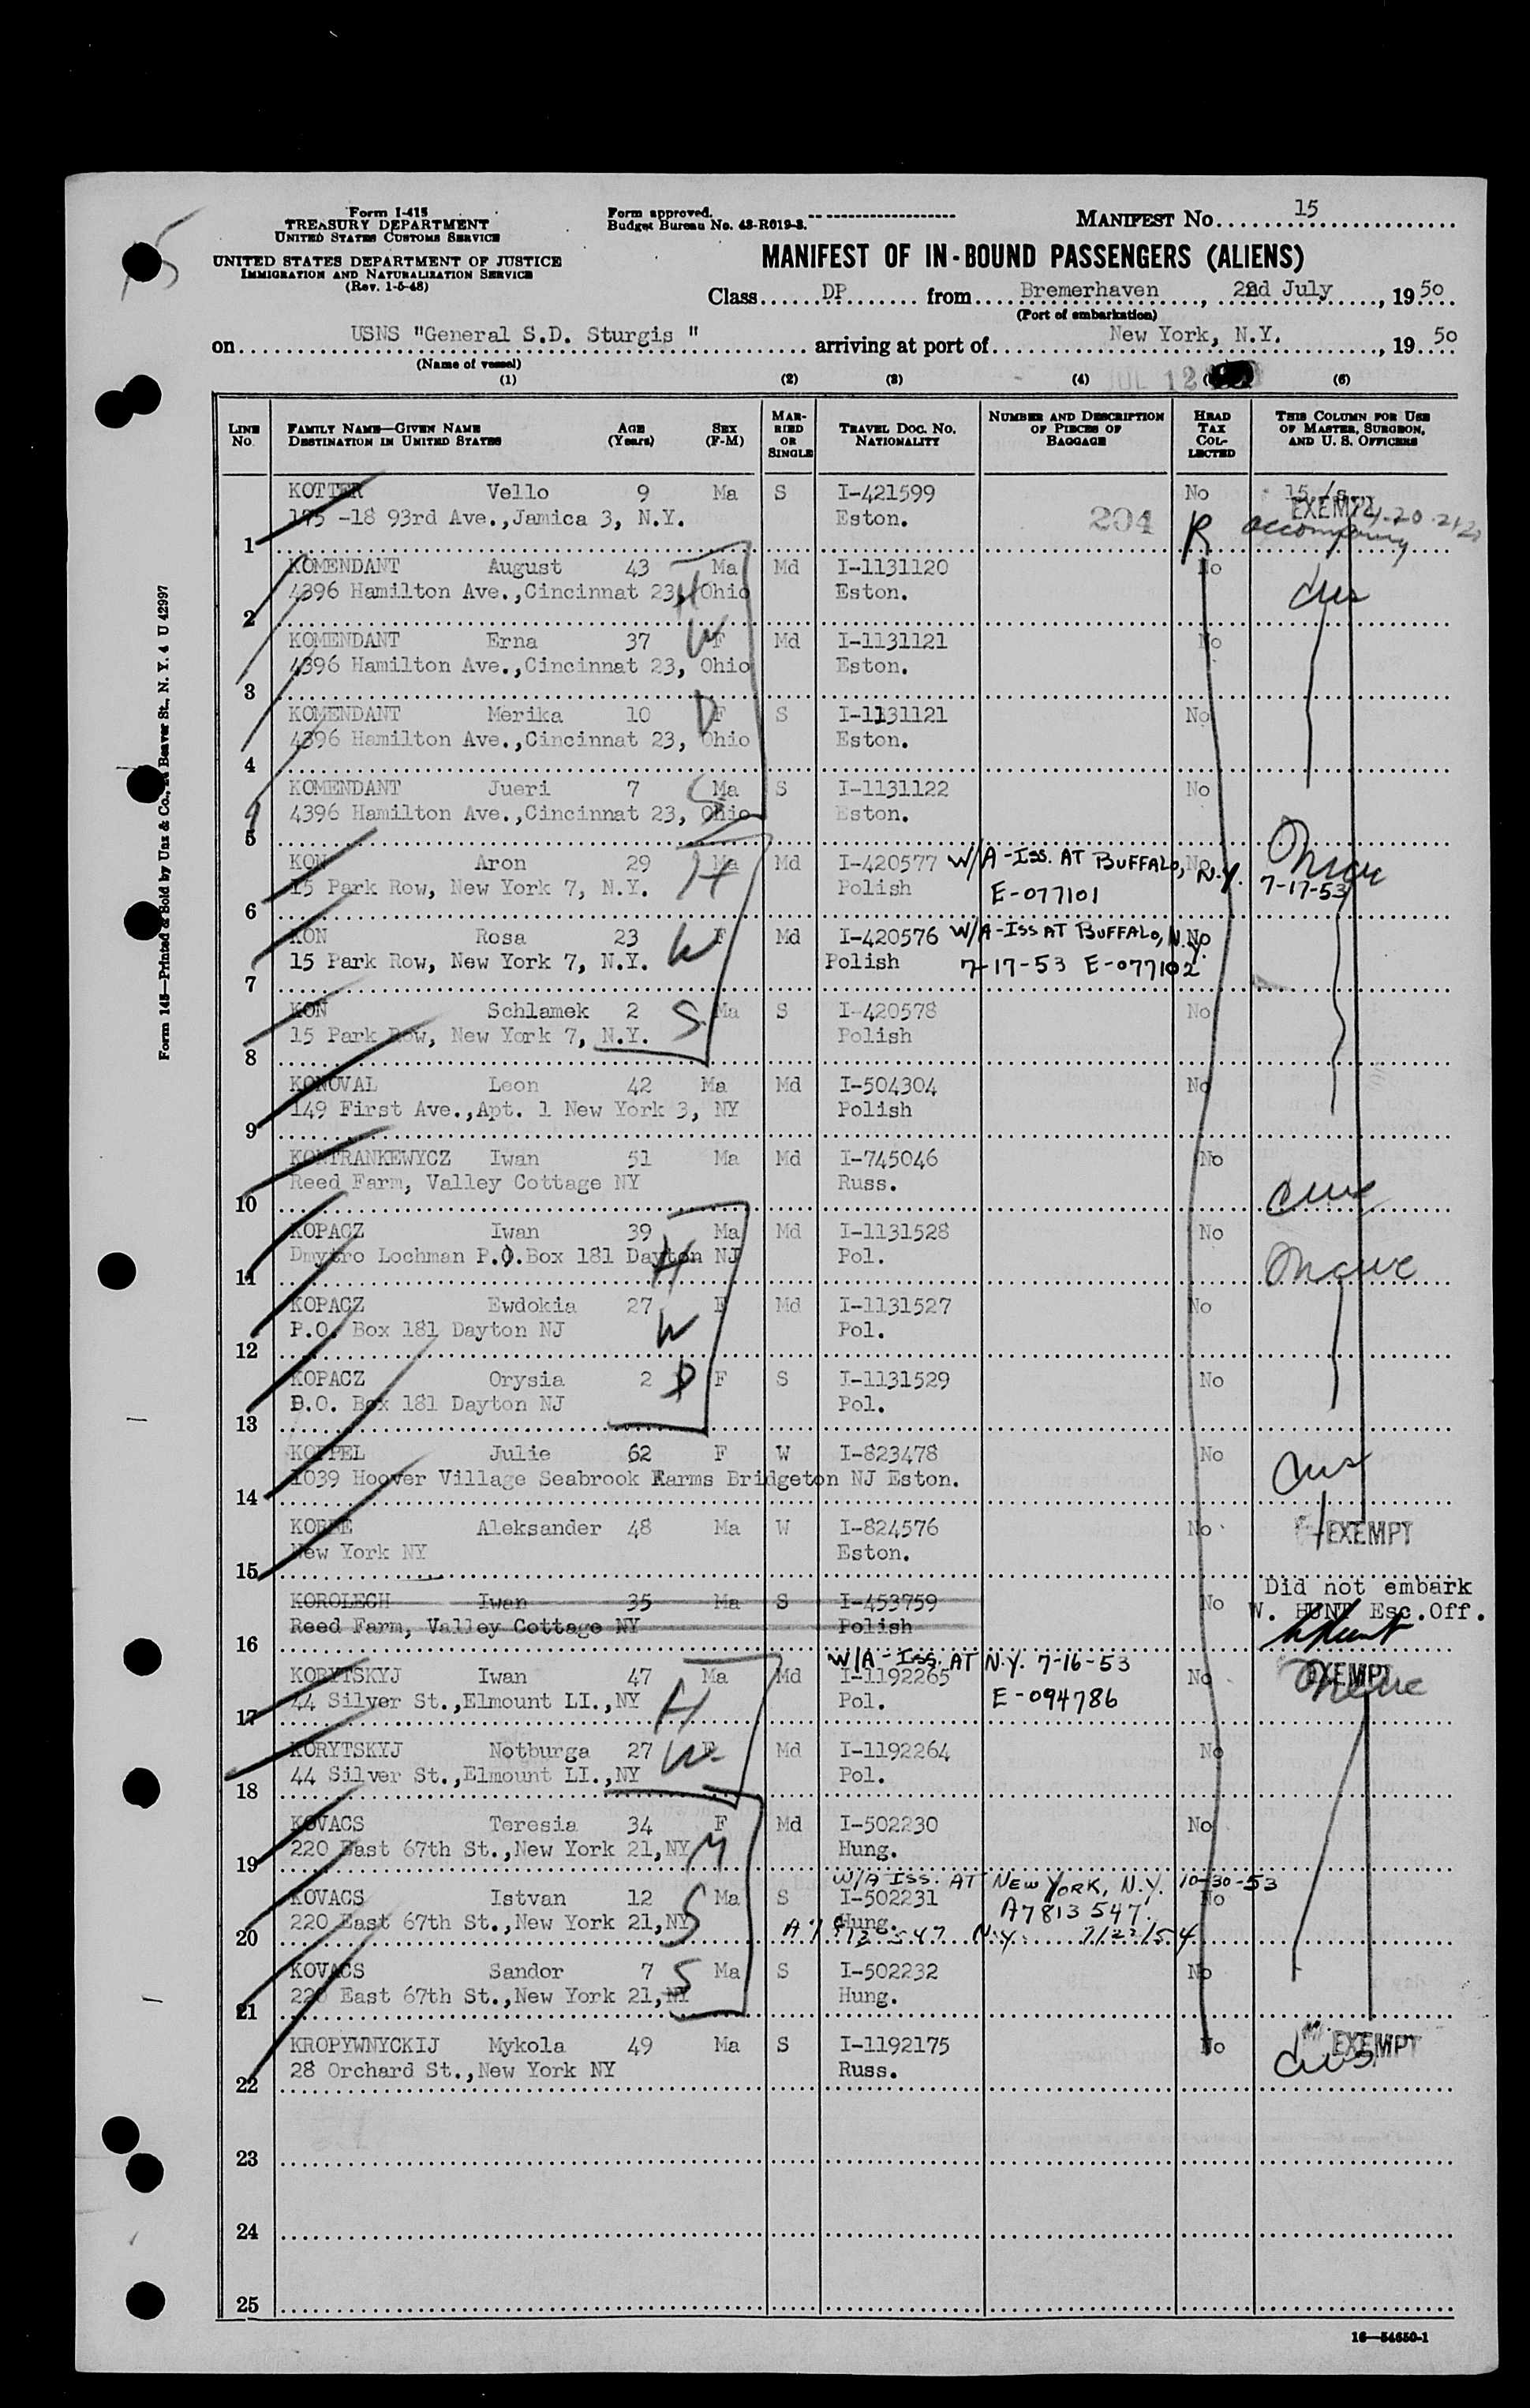 Form I-415
TREASURY DEPARTMENT
UNITED STATES CUSTOMS SERVICE
UNITED STATES DEPARTMENT OF JUSTICE
IMMIGRATION AND NATURALIZATION SERVICE
(Rev. 1-5-48)
Form approved.
Budget Bureau No. 43-R019-3.
MANIFEST No. 15
MANIFEST OF IN-BOUND PASSENGERS (ALIENS)
Class DP from Bremerhaven, 22nd July, 1950
(Port of embarkation)
on USNS "General S.D. Sturgis " arriving at port of New York, N.Y., 1950
(Name of vessel)
(1) (2) (3) (4) JUL 12 (6)
LINE No. FAMILY NAME—GIVEN NAME DESTINATION IN UNITED STATES AGE (Years) SEX (F-M) MARRIED OR SINGLE TRAVEL DOC. NO. NATIONALITY NUMBER AND DESCRIPTION OF PIECES OF BAGGAGE HEAD TAX COLLECTED THIS COLUMN FOR USE OF MASTER, SURGEON, AND U. S. OFFICERS
KOTTER Vello 9 Ma S I-421599 No EXEMPT
1 195 -18 93rd Ave.,Jamica 3, N.Y. Eston. 204 R accompany
KOMENDANT August 43 Ma Md I-1131120 No
2 4396 Hamilton Ave.,Cincinnat 23, Ohio H Eston.
KOMENDANT Erna 37 W F Md I-1131121 No
3 4396 Hamilton Ave.,Cincinnat 23, Ohio Eston.
KOMENDANT Merika 10 D F S I-1131121 No
4 4396 Hamilton Ave.,Cincinnat 23, Ohio Eston.
KOMENDANT Jueri 7 S Ma S I-1131122 No
5 4396 Hamilton Ave.,Cincinnat 23, Ohio Eston.
KON Aron 29 H Ma Md I-420577 W/A-Iss. AT BUFFALO, N.Y. No
6 15 Park Row, New York 7, N.Y. Polish E-077101 7-17-53
KON Rosa 23 W F Md I-420576 W/A-Iss AT BUFFALO, N.Y. No
7 15 Park Row, New York 7, N.Y. Polish 7-17-53 E-077102
KON Schlamek 2 S Ma S I-420578 No
8 15 Park Row, New York 7, N.Y. Polish
KONOVAL Leon 42 Ma Md I-504304 No
9 149 First Ave.,Apt. 1 New York 3, NY Polish
KONTRANKEWYCZ Iwan 51 Ma Md I-745046 No
10 Reed Farm, Valley Cottage NY Russ.
KOPACZ Iwan 39 Ma Md I-1131528 No
11 Dmytro Lochman P.O.Box 181 Dayton NJ H Pol.
KOPACZ Ewdokia 27 F Md I-1131527 No
12 P.O. Box 181 Dayton NJ W Pol.
KOPACZ Orysia 2 D F S I-1131529 No
13 P.O. Box 181 Dayton NJ Pol.
KOPPEL Julie 62 F W I-823478 No
14 1039 Hoover Village Seabrook Farms Bridgeton NJ Eston.
Aleksander 48 Ma W I-824576 No EXEMPT
15 New York NY Eston.
KOROLECH Iwan 35 Ma S I-453759 No Did not embark
16 Reed Farm, Valley Cottage NY Polish W. HUNT Esc.Off.
W/A-Iss. AT N.Y. 7-16-53
KORYTSKYJ Iwan 47 Ma Md I-1192265 No EXEMPT
17 44 Silver St.,Elmount LI.,NY H Pol. E-094786
KORYTSKYJ Notburga 27 W F Md I-1192264 No
18 44 Silver St.,Elmount LI.,NY Pol.
KOVACS Teresia 34 F Md I-502230 No
19 220 East 67th St.,New York 21,NY M Hung.
W/A Iss. AT NEW YORK, N.Y. 10-30-53
KOVACS Istvan 12 S Ma S I-502231 A7813 547 No
20 220 East 67th St.,New York 21,NY Hung. A7 813 547 N.Y.
KOVACS Sandor 7 S Ma S I-502232 No
21 220 East 67th St.,New York 21,NY Hung.
KROPYWNYCKIJ Mykola 49 Ma S I-1192175 No EXEMPT
22 28 Orchard St.,New York NY Russ.
23
24
25
16—54650-1